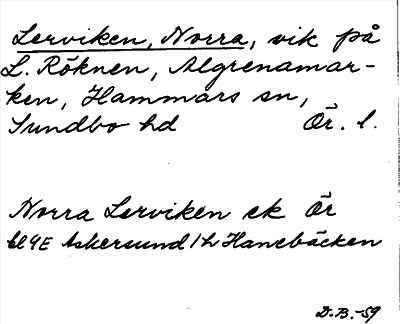 Lerviken, Norra, vik på
L. Röknen, Algrenamar-
ken, Hammars sn,
Sundbo hd Ör. l.
Norra Lerviken ek Ör
bl 9E Askersund 1h Hanebäcken
D.B.-59